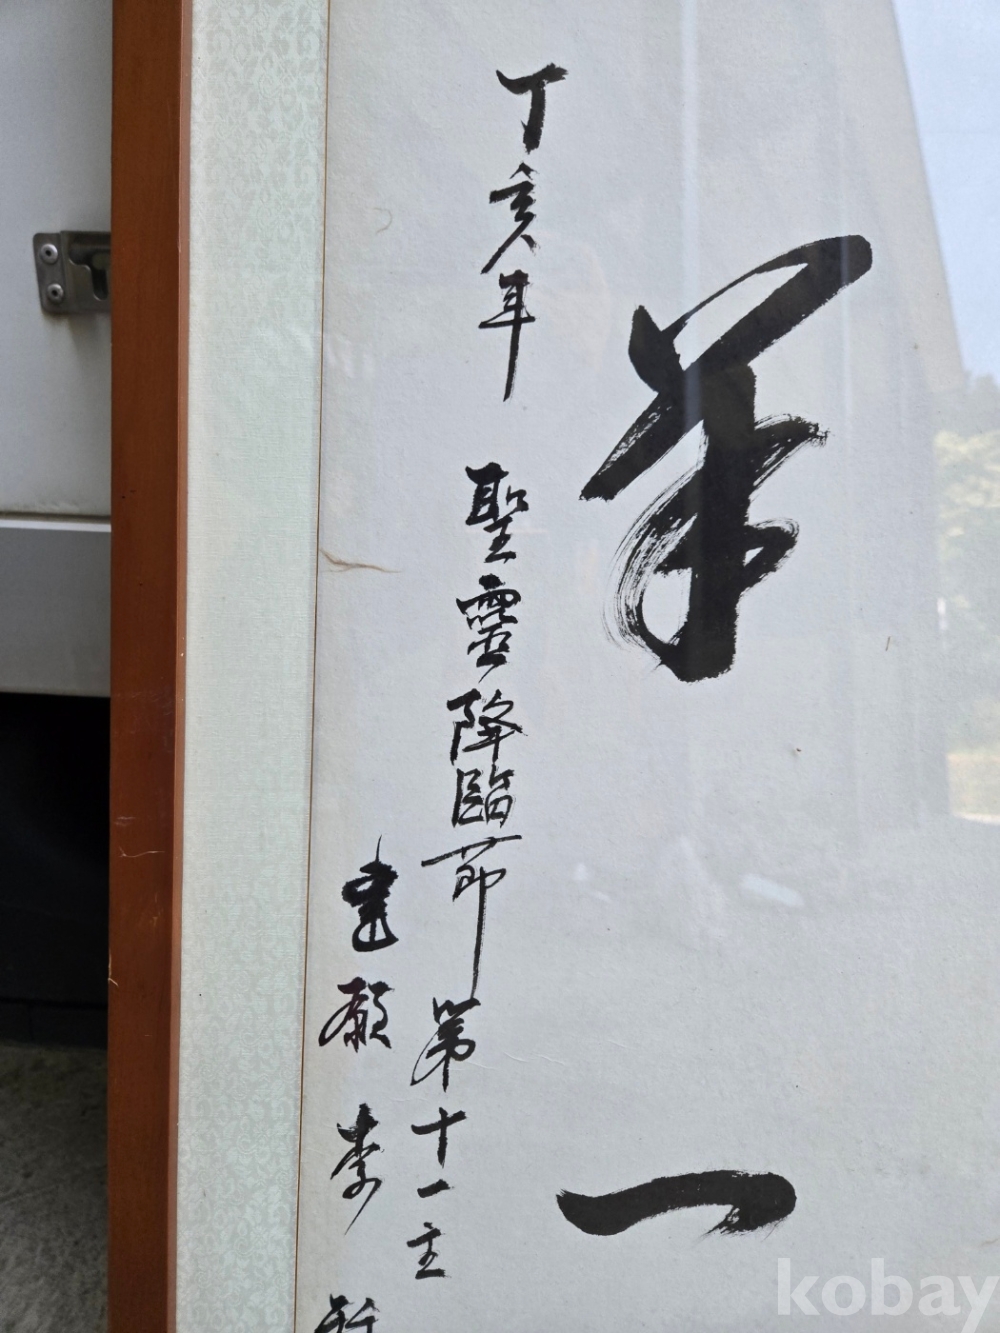 羊一
丁亥年 聖靈降臨節 第十一主
李
kobay